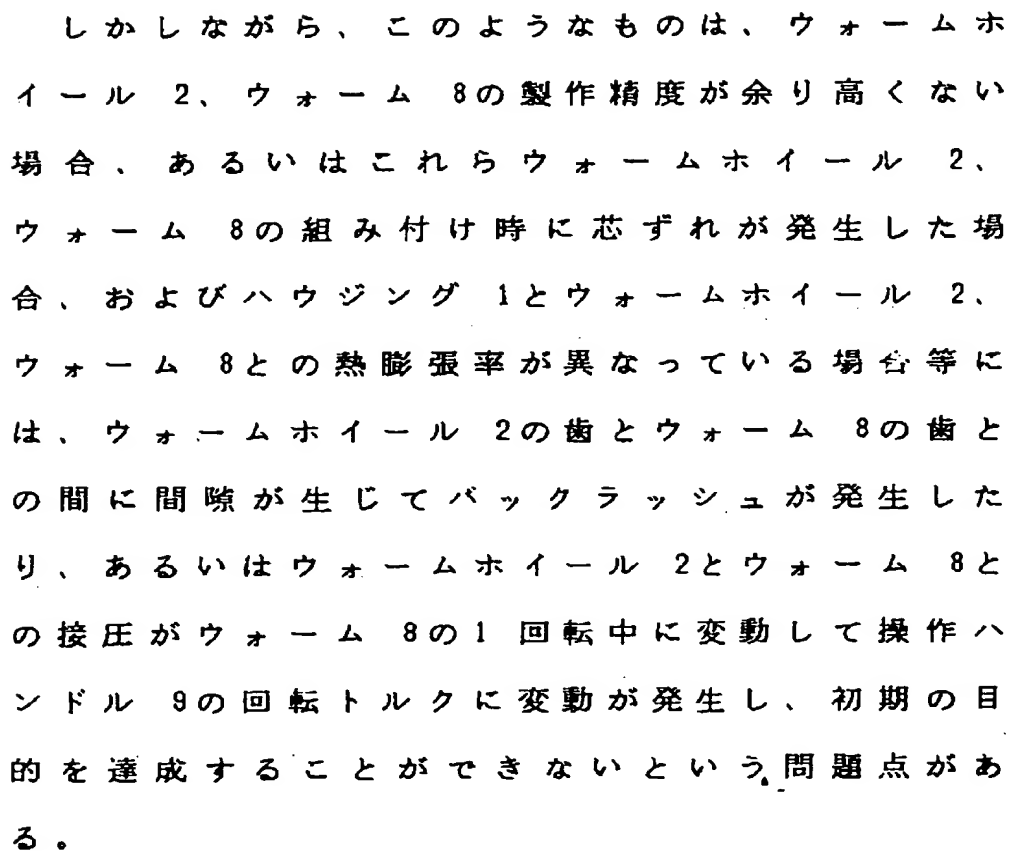 しかしながら、このようなものは、ウォームホ
イール 2、ウォーム 8の製作精度が余り高くない
場合、あるいはこれらウォームホイール 2、
ウォーム 8の組み付け時に芯ずれが発生した場
合、およびハウジング 1とウォームホイール 2、
ウォーム 8との熱膨張率が異なっている場合等に
は、ウォームホイール 2の歯とウォーム 8の歯と
の間に間隙が生じてバックラッシュが発生した
り、あるいはウォームホイール 2とウォーム 8と
の接圧がウォーム 8の1 回転中に変動して操作ハ
ンドル 9の回転トルクに変動が発生し、初期の目
的を達成することができないという問題点があ
る。